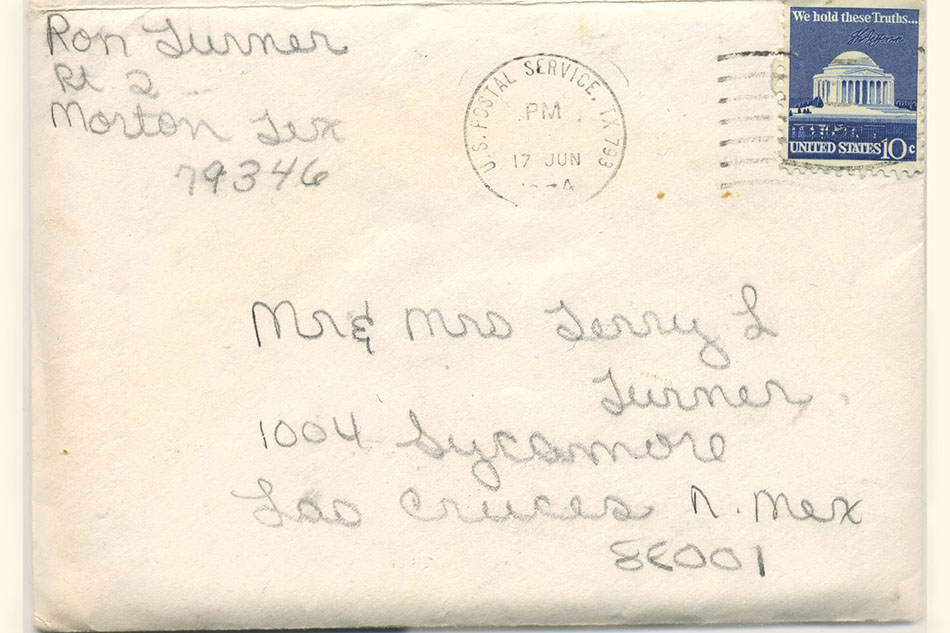 Ron Turner
Rt 2
Morton Tex
79346
U.S. POSTAL SERVICE, TX 793
PM
17 JUN
We hold these Truths...
UNITED STATES 10c
Mr & Mrs Terry L
Turner
1004 Sycamore
Las Cruces N. Mex
88001